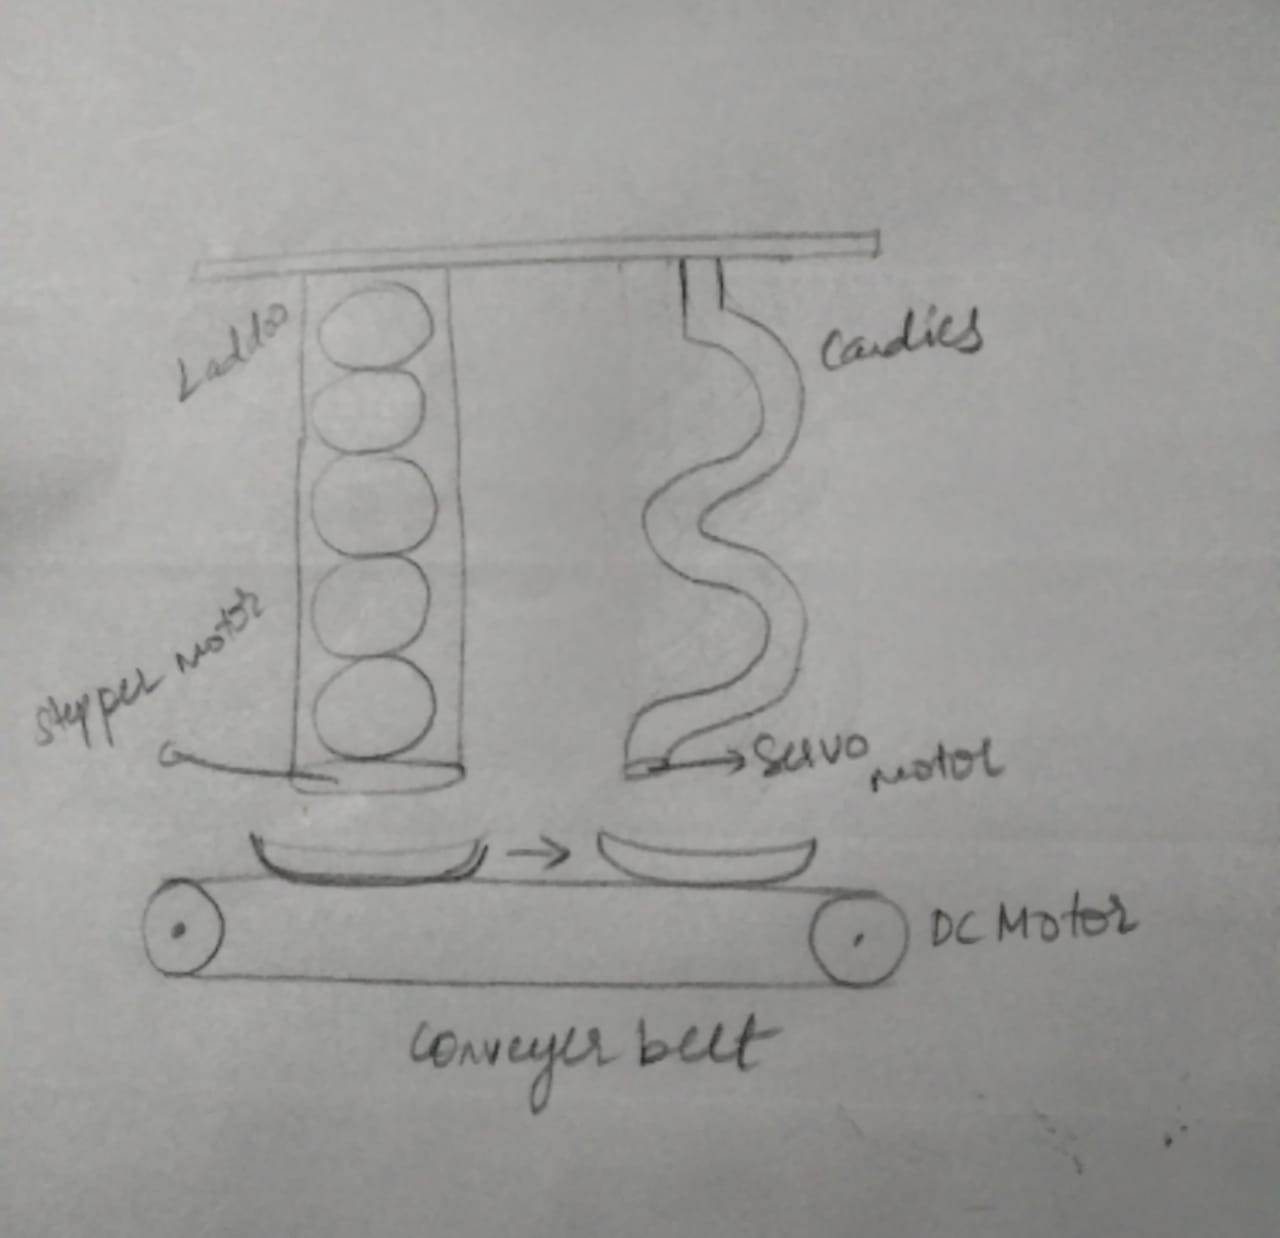 Laddoo
Candies
Stepper motor
Servo
motor
DC Motor
Conveyer belt